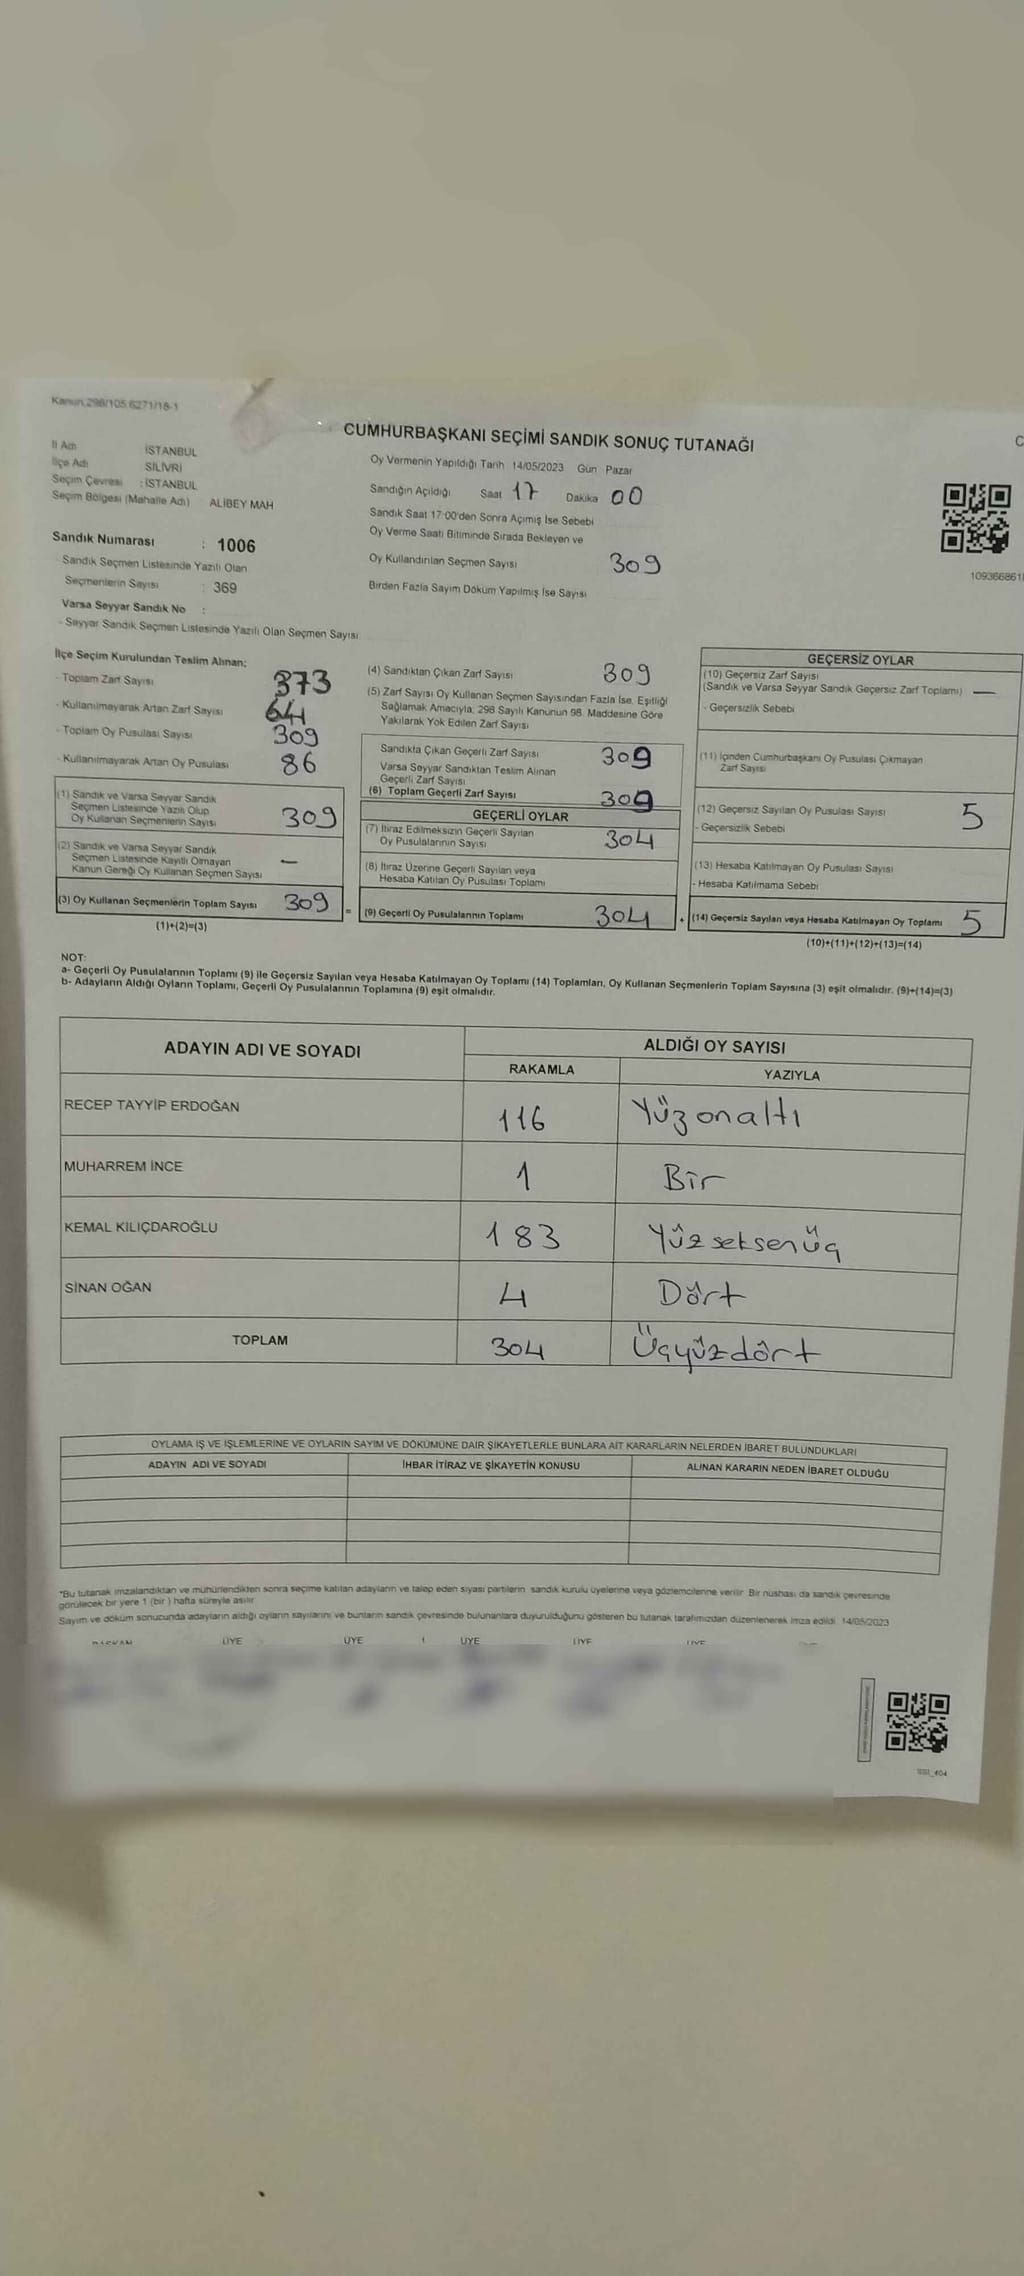 Kanun 298/105 6271/18-1
CUMHURBAŞKANI SEÇİMİ SANDIK SONUÇ TUTANAĞI
İl Adı İSTANBUL
İlçe Adı SİLİVRİ
Seçim Çevresi : İSTANBUL
Seçim Bölgesi (Mahalle Adı) ALİBEY MAH
Sandık Numarası : 1006
Sandık Seçmen Listesinde Yazılı Olan
Seçmenlerin Sayısı : 369
Varsa Seyyar Sandık No :
- Seyyar Sandık Seçmen Listesinde Yazılı Olan Seçmen Sayısı
Oy Vermenin Yapıldığı Tarih 14/05/2023 Gün Pazar
Sandığın Açıldığı Saat 17 Dakika 00
Sandık Saat 17:00'den Sonra Açılmış İse Sebebi
Oy Verme Saati Bitiminde Sırada Bekleyen ve
Oy Kullandırılan Seçmen Sayısı 309
Birden Fazla Sayım Döküm Yapılmış İse Sayısı
C
109366861
İlçe Seçim Kurulundan Teslim Alınan;
- Toplam Zarf Sayısı 373
- Kullanılmayarak Artan Zarf Sayısı 64
- Toplam Oy Pusulası Sayısı 309
- Kullanılmayarak Artan Oy Pusulası 86
(1) Sandık ve Varsa Seyyar Sandık
Seçmen Listesinde Yazılı Olup
Oy Kullanan Seçmenlerin Sayısı 309
(2) Sandık ve Varsa Seyyar Sandık
Seçmen Listesinde Kayıtlı Olmayan
Kanun Gereği Oy Kullanan Seçmen Sayısı —
(3) Oy Kullanan Seçmenlerin Toplam Sayısı 309 =
(1)+(2)=(3)
(4) Sandıktan Çıkan Zarf Sayısı 309
(5) Zarf Sayısı Oy Kullanan Seçmen Sayısından Fazla İse, Eşitliği
Sağlamak Amacıyla, 298 Sayılı Kanunun 98. Maddesine Göre
Yakılarak Yok Edilen Zarf Sayısı
Sandıkta Çıkan Geçerli Zarf Sayısı 309
Varsa Seyyar Sandıktan Teslim Alınan
Geçerli Zarf Sayısı
(6) Toplam Geçerli Zarf Sayısı 309
GEÇERLİ OYLAR
(7) İtiraz Edilmeksizin Geçerli Sayılan
Oy Pusulalarının Sayısı 304
(8) İtiraz Üzerine Geçerli Sayılan veya
Hesaba Katılan Oy Pusulası Toplamı
(9) Geçerli Oy Pusulalarının Toplamı 304 +
GEÇERSİZ OYLAR
(10) Geçersiz Zarf Sayısı
(Sandık ve Varsa Seyyar Sandık Geçersiz Zarf Toplamı) —
- Geçersizlik Sebebi
(11) İçinden Cumhurbaşkanı Oy Pusulası Çıkmayan
Zarf Sayısı
(12) Geçersiz Sayılan Oy Pusulası Sayısı 5
- Geçersizlik Sebebi
(13) Hesaba Katılmayan Oy Pusulası Sayısı
- Hesaba Katılmama Sebebi
(14) Geçersiz Sayılan veya Hesaba Katılmayan Oy Toplamı 5
(10)+(11)+(12)+(13)=(14)
NOT:
a- Geçerli Oy Pusulalarının Toplamı (9) ile Geçersiz Sayılan veya Hesaba Katılmayan Oy Toplamı (14) Toplamları, Oy Kullanan Seçmenlerin Toplam Sayısına (3) eşit olmalıdır. (9)+(14)=(3)
b- Adayların Aldığı Oyların Toplamı, Geçerli Oy Pusulalarının Toplamına (9) eşit olmalıdır.
ADAYIN ADI VE SOYADI ALDIĞI OY SAYISI
RAKAMLA YAZIYLA
RECEP TAYYİP ERDOĞAN 116 Yüzonaltı
MUHARREM İNCE 1 Bir
KEMAL KILIÇDAROĞLU 183 Yüzseksenüç
SİNAN OĞAN 4 Dört
TOPLAM 304 Üçyüzdört
OYLAMA İŞ VE İŞLEMLERİNE VE OYLARIN SAYIM VE DÖKÜMÜNE DAİR ŞİKAYETLERLE BUNLARA AİT KARARLARIN NELERDEN İBARET BULUNDUKLARI
ADAYIN ADI VE SOYADI İHBAR İTİRAZ VE ŞİKAYETİN KONUSU ALINAN KARARIN NEDEN İBARET OLDUĞU
*Bu tutanak imzalandıktan ve mühürlendikten sonra seçime katılan adayların ve talep eden siyasi partilerin sandık kurulu üyelerine veya gözlemcilerine verilir. Bir nüshası da sandık çevresinde
görülecek bir yere 1 (bir) hafta süreyle asılır.
Sayım ve döküm sonucunda adayların aldığı oyların sayılarını ve bunların sandık çevresinde bulunanlara duyurulduğunu gösteren bu tutanak tarafımızdan düzenlenerek imza edildi. 14/05/2023
BAŞKAN ÜYE ÜYE ÜYE ÜYE ÜYE
SSI_404